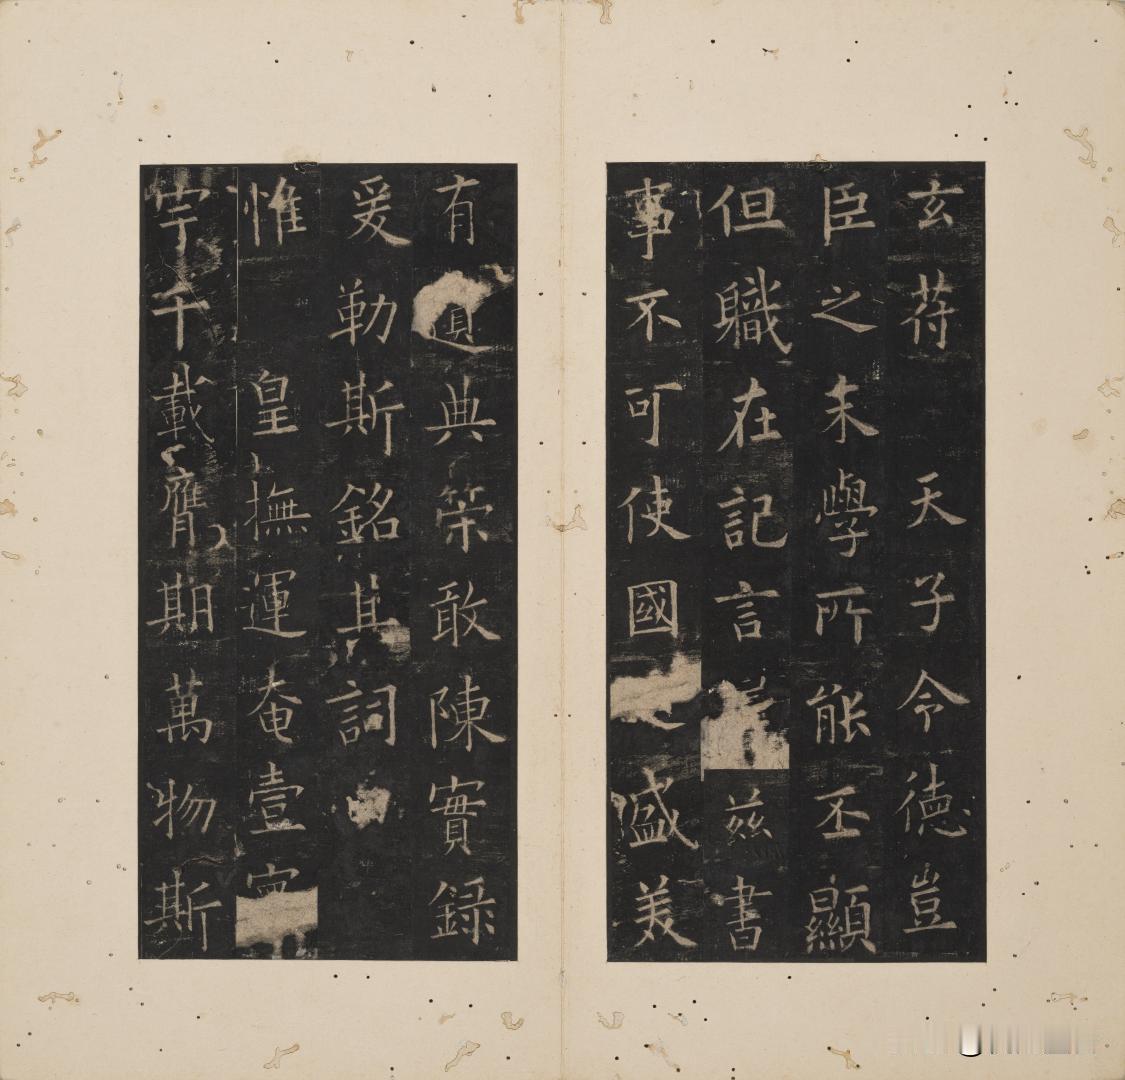 玄符 天子令德豈
臣之末學所能丕顯
但職在記言茲書
事不可使國盛美
有遺典策敢陳實錄
爰勒斯銘其詞
惟 皇撫運奄壹
宇千載膺期萬物斯